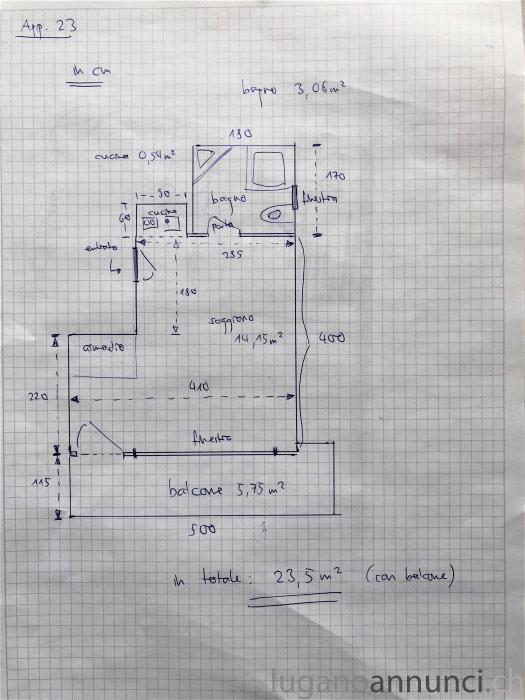 App. 23
in cm
bagno 3,06 m²
180
cucina 0,54 m²
170
90
bagno
finestra
60
cucina
porta
entrata
285
180
soggiorno
14,15 m²
400
armadio
410
220
finestra
115
balcone 5,75 m²
500
in totale: 23,5 m² (con balcone)
luganoannunci.ch